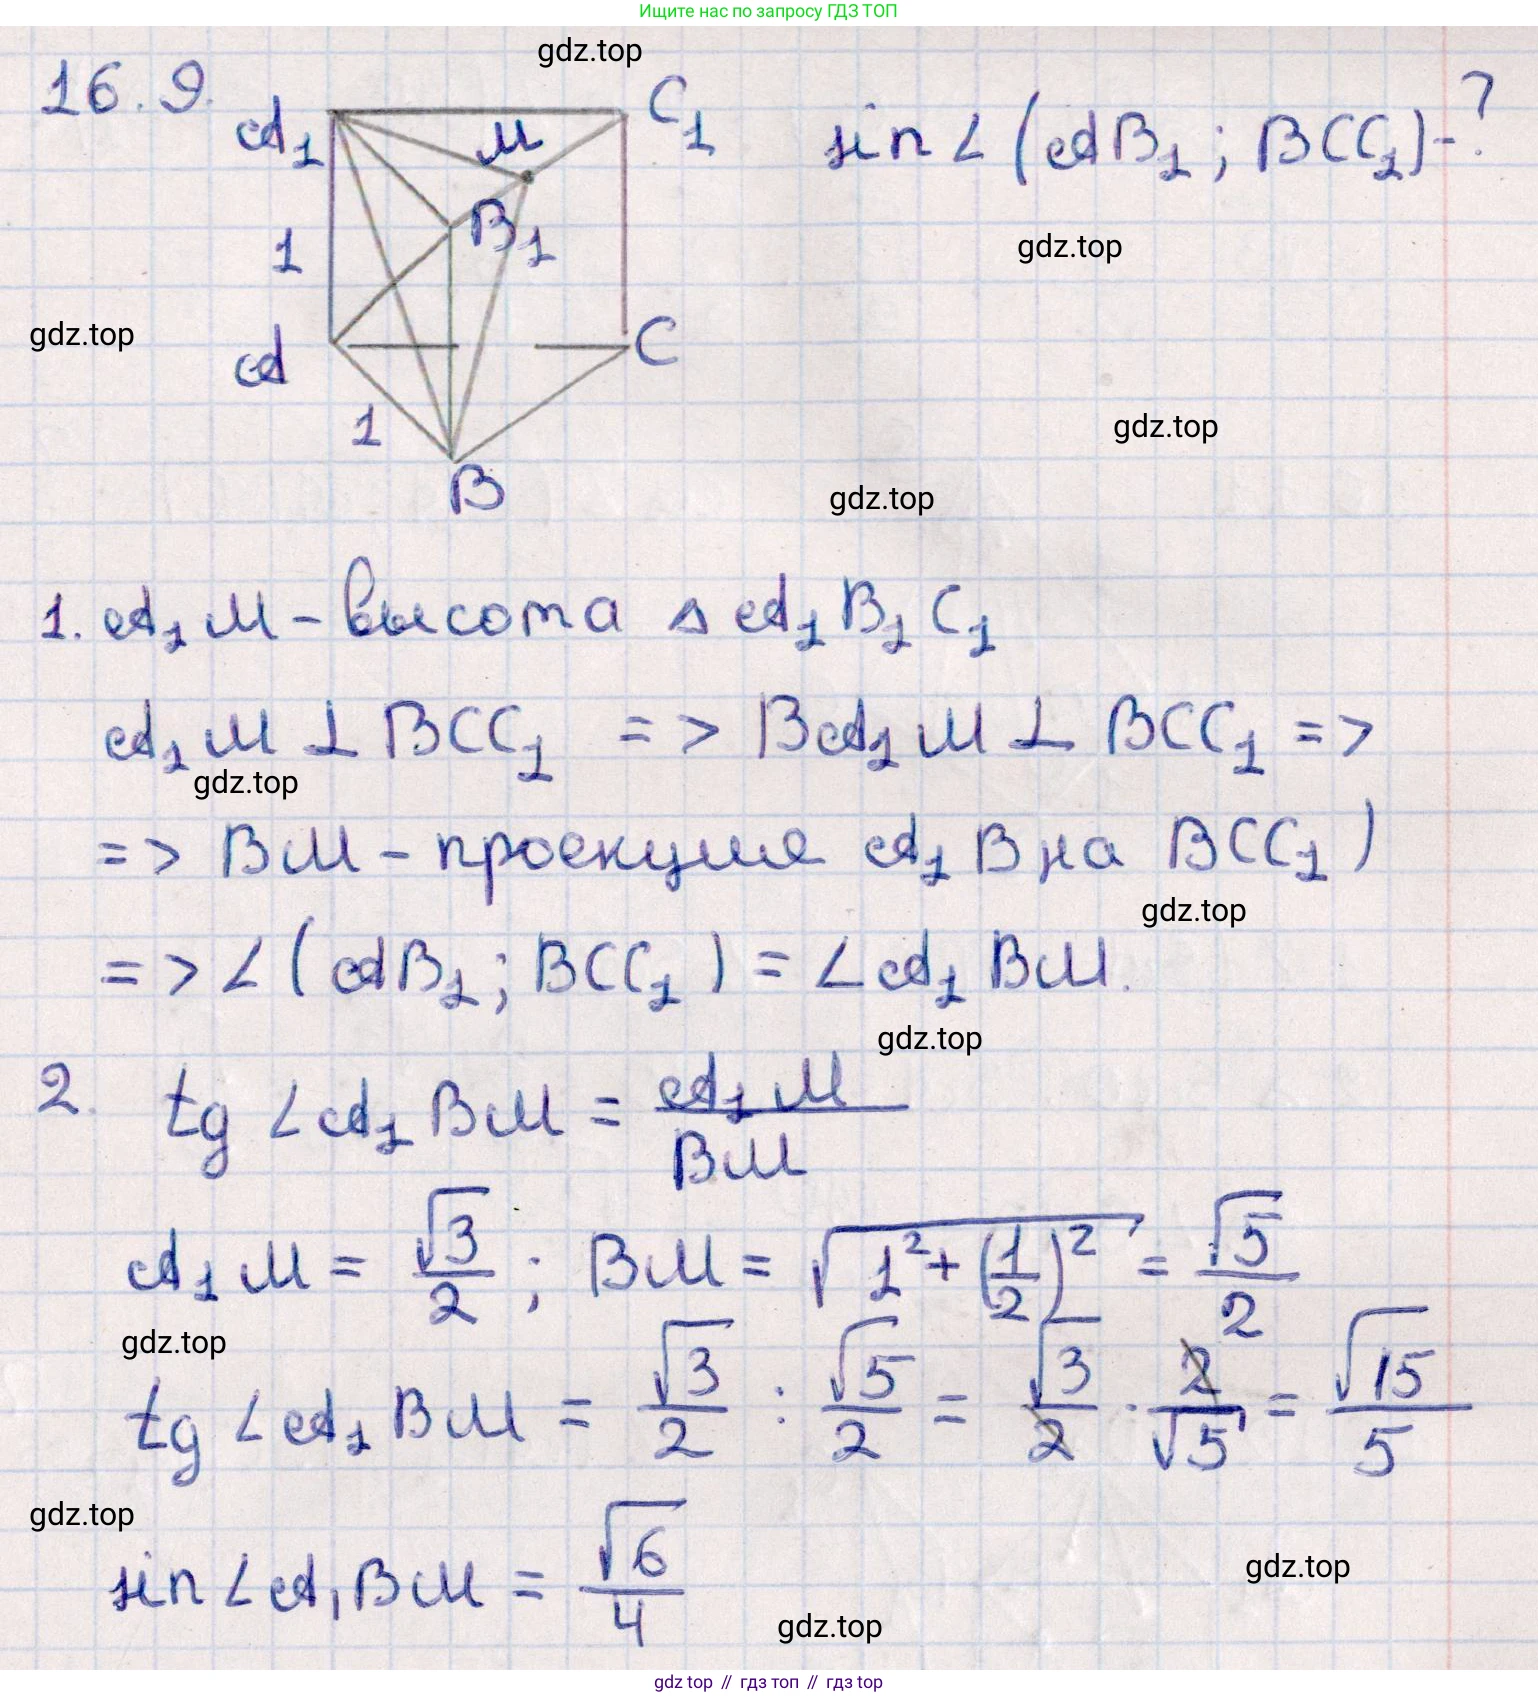 Ищите нас по запросу ГДЗ ТОП
gdz.top
16.9.
A₁
M
C₁
sin∠(AB₁; BCC₁)-?
B₁
gdz.top
1
gdz.top
A
C
1
gdz.top
B
gdz.top
1. A₁M – высота △A₁B₁C₁
A₁M ⊥ BCC₁ => BA₁M ⊥ BCC₁ =>
gdz.top
=> BM – проекция A₁B на BCC₁)
gdz.top
=> ∠(AB₁; BCC₁) = ∠A₁BM.
gdz.top
2. tg∠A₁BM = A₁M/BM
A₁M = √3/2; BM = √(1²+(1/2)²) = √5/2
gdz.top
tg∠A₁BM = √3/2 : √5/2 = √3/2 · 2/√5 = √15/5
gdz.top
sin∠A₁BM = √6/4
gdz.top
gdz.top
gdz top // гдз топ // гдз top